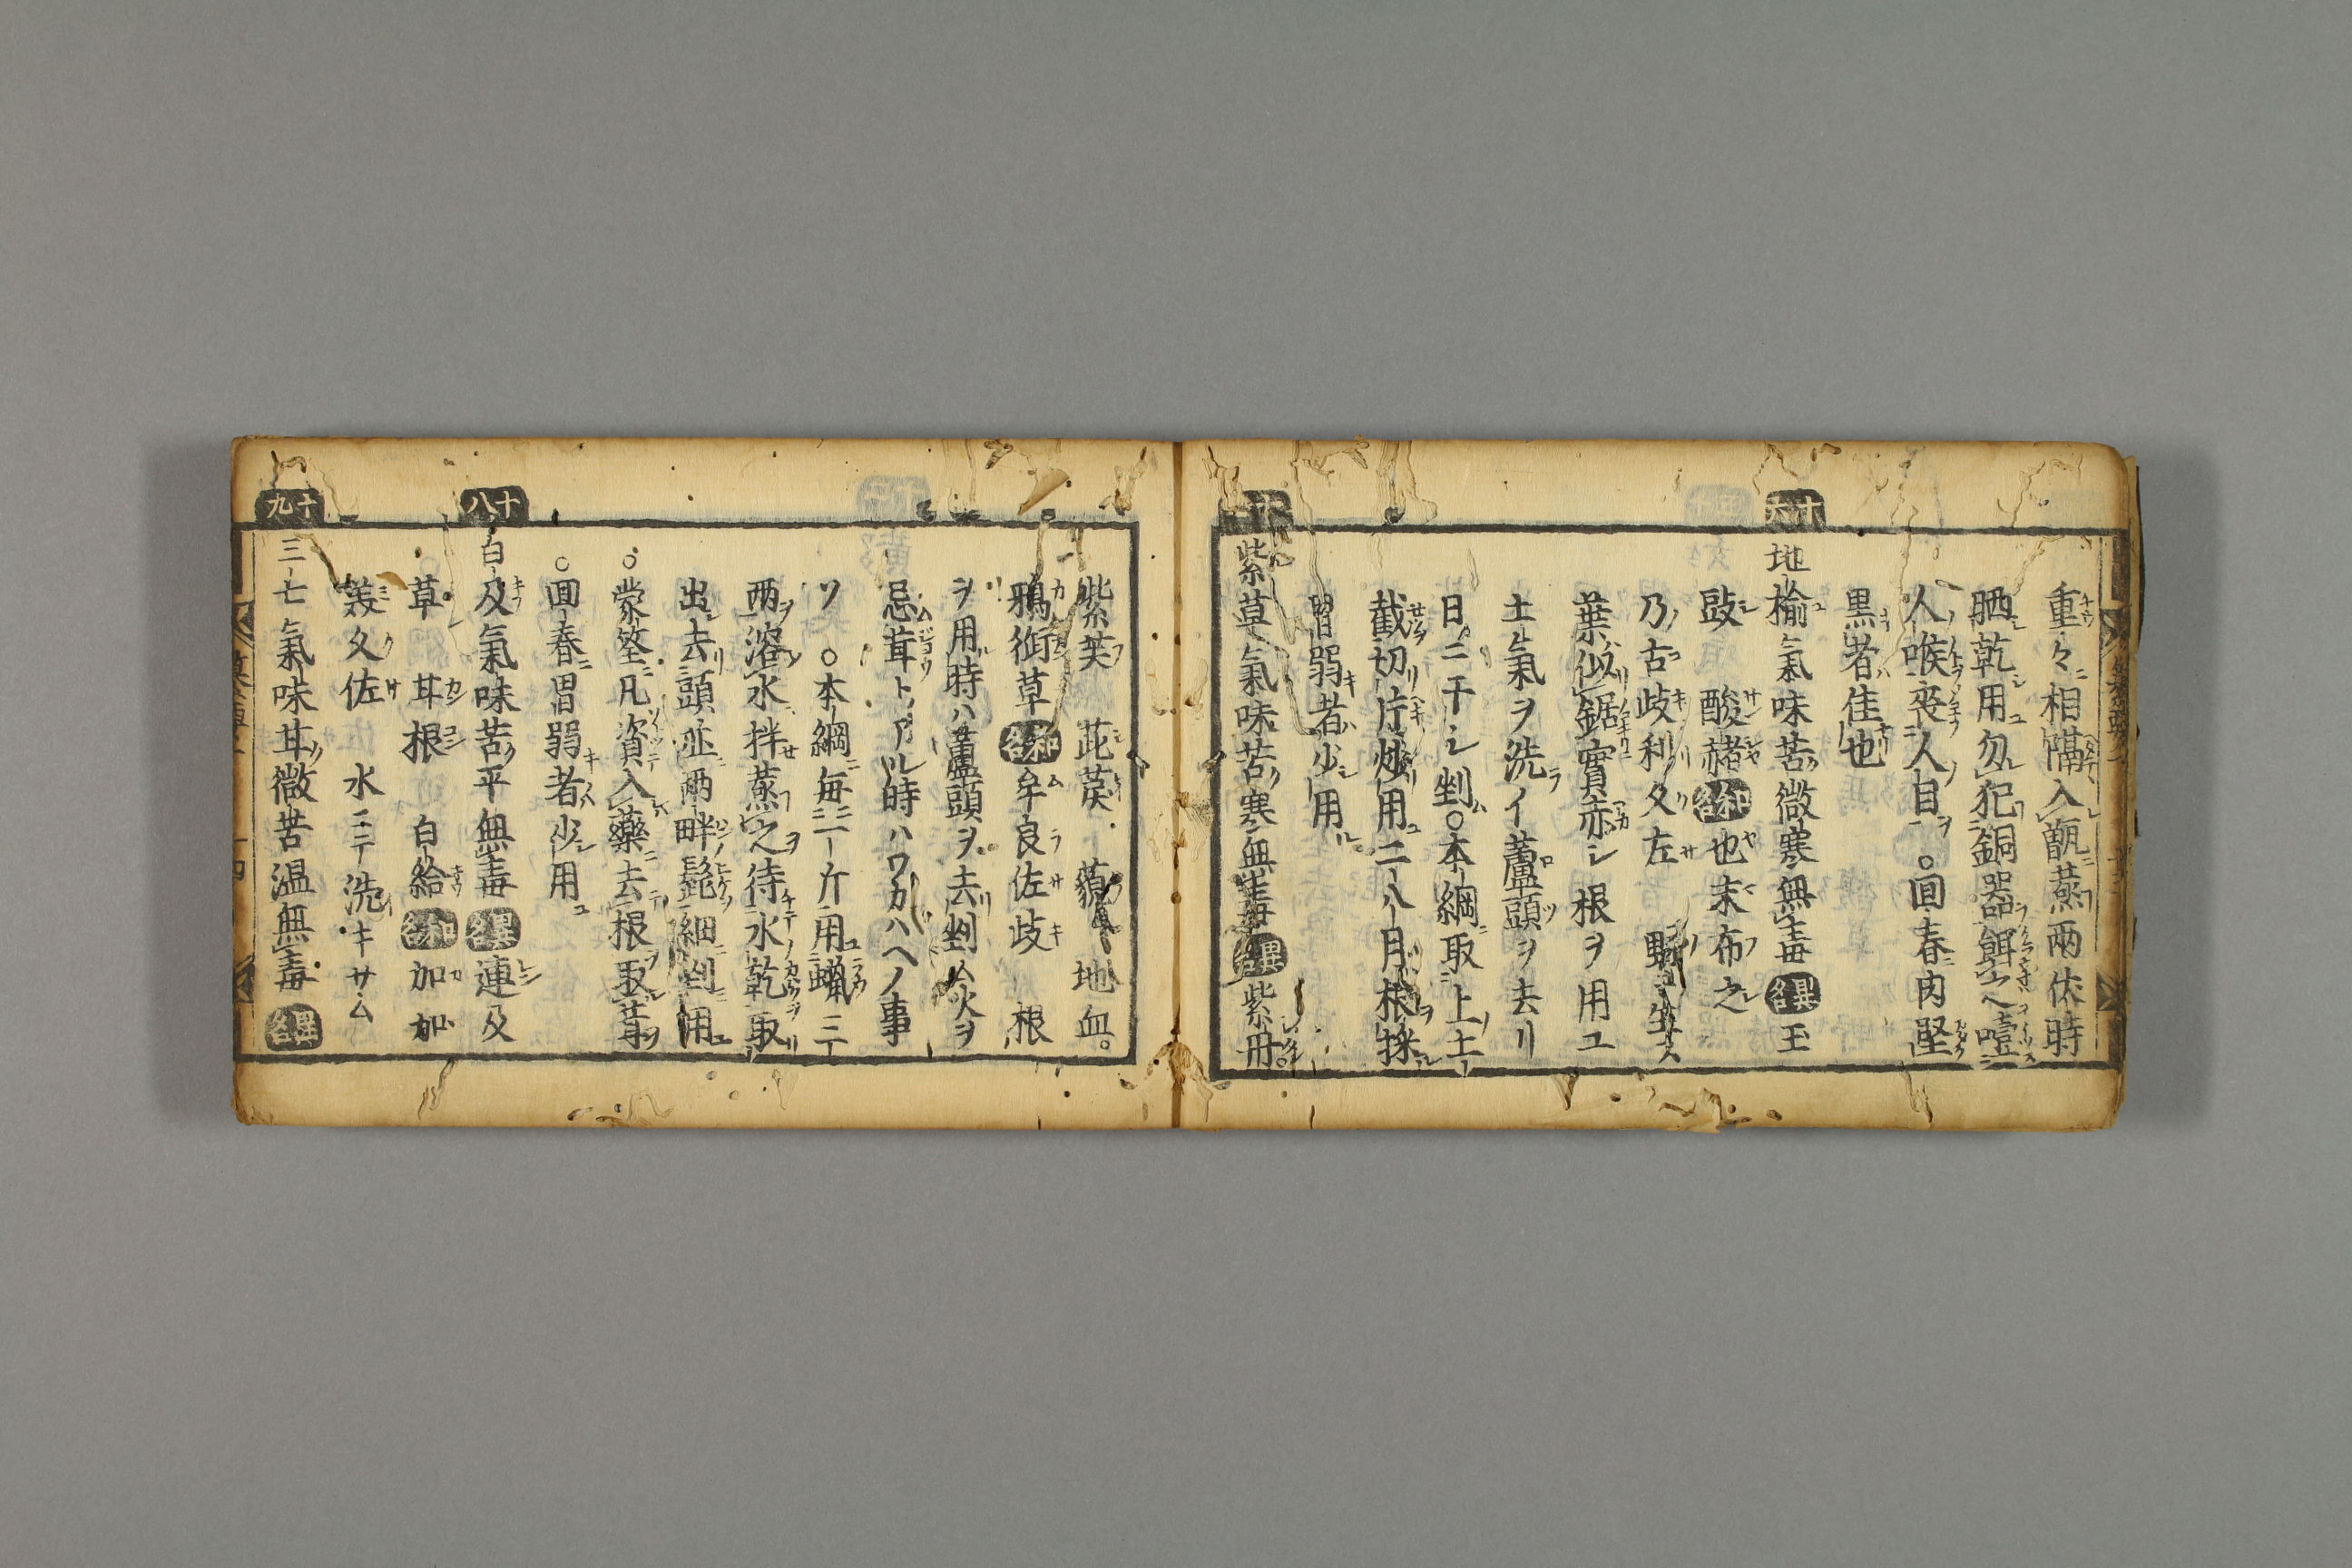 重々相隔入甑蒸兩伏時
晒乾用勿犯銅器餌之噎
人喉喪人目○回春肉堅
黒者佳也
十六
地榆氣味苦微寒無毒異名玉
豉 酸赭和名也末布之
乃古歧利久左 野生ス
葉似鋸實赤シ根ヲ用ユ
土氣ヲ洗イ蘆頭ヲ去リ
日ニ干シ剉ム○本綱取上土
截切片炒用二八月根採
胃弱者少用
紫草氣味苦寒無毒異名紫丹
紫芙 茈䓞 藐 地血
鴉銜草和名牟良佐歧 根
ヲ用時ハ蘆頭ヲ去剉ム火ヲ
忌茸トアル時ハワカハヘノ事
ソ ○本綱毎一斤用蠟三
兩溶水拌蒸之待水乾取
出去頭並兩畔髭細剉用
○蒙筌凡資入藥去根取茸
○回春胃弱者少用
十八
白及氣味苦平無毒異名連及
草 甘根 白給和名加加
美久佐 水ニテ洗キサム
十九
三七氣味甘微苦温無毒異名